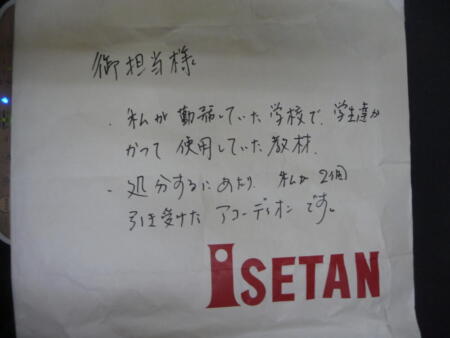 御担当様
・私が勤務していた学校で、学生達が
かつて使用していた教材.
・処分するにあたり、私が2個
引き受けたアコーディオンです。
ISETAN